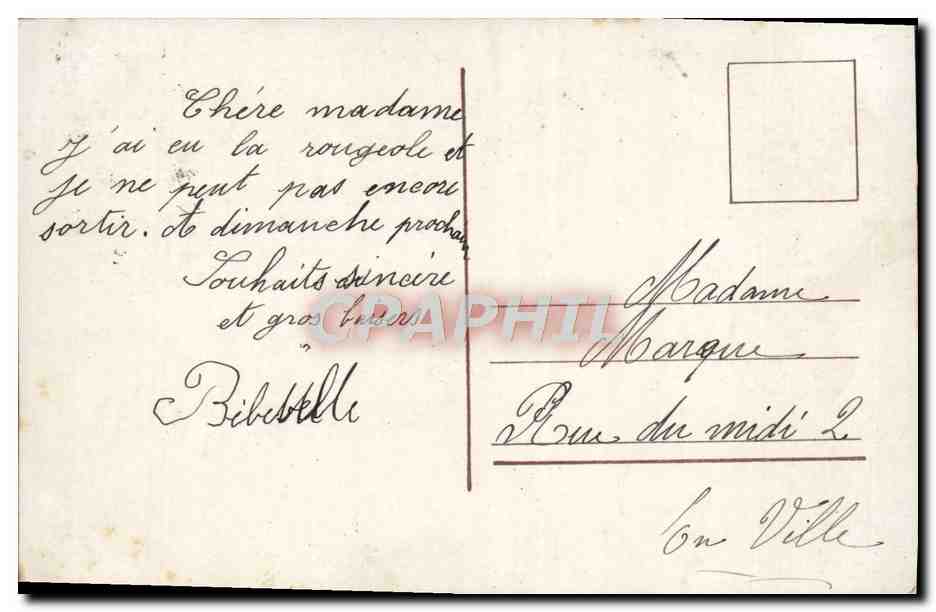 Chére madame
J'ai eu la rougeole et
je ne peut pas encore
sortir. A dimanche prochain
Souhaits sincére
et gros baisers
Bibebelle
CPAPHIL
Madame
Marque
Rue du midi 2
En Ville